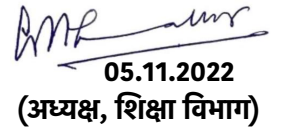 05.11.2022
(अध्यक्ष, शिक्षा विभाग)